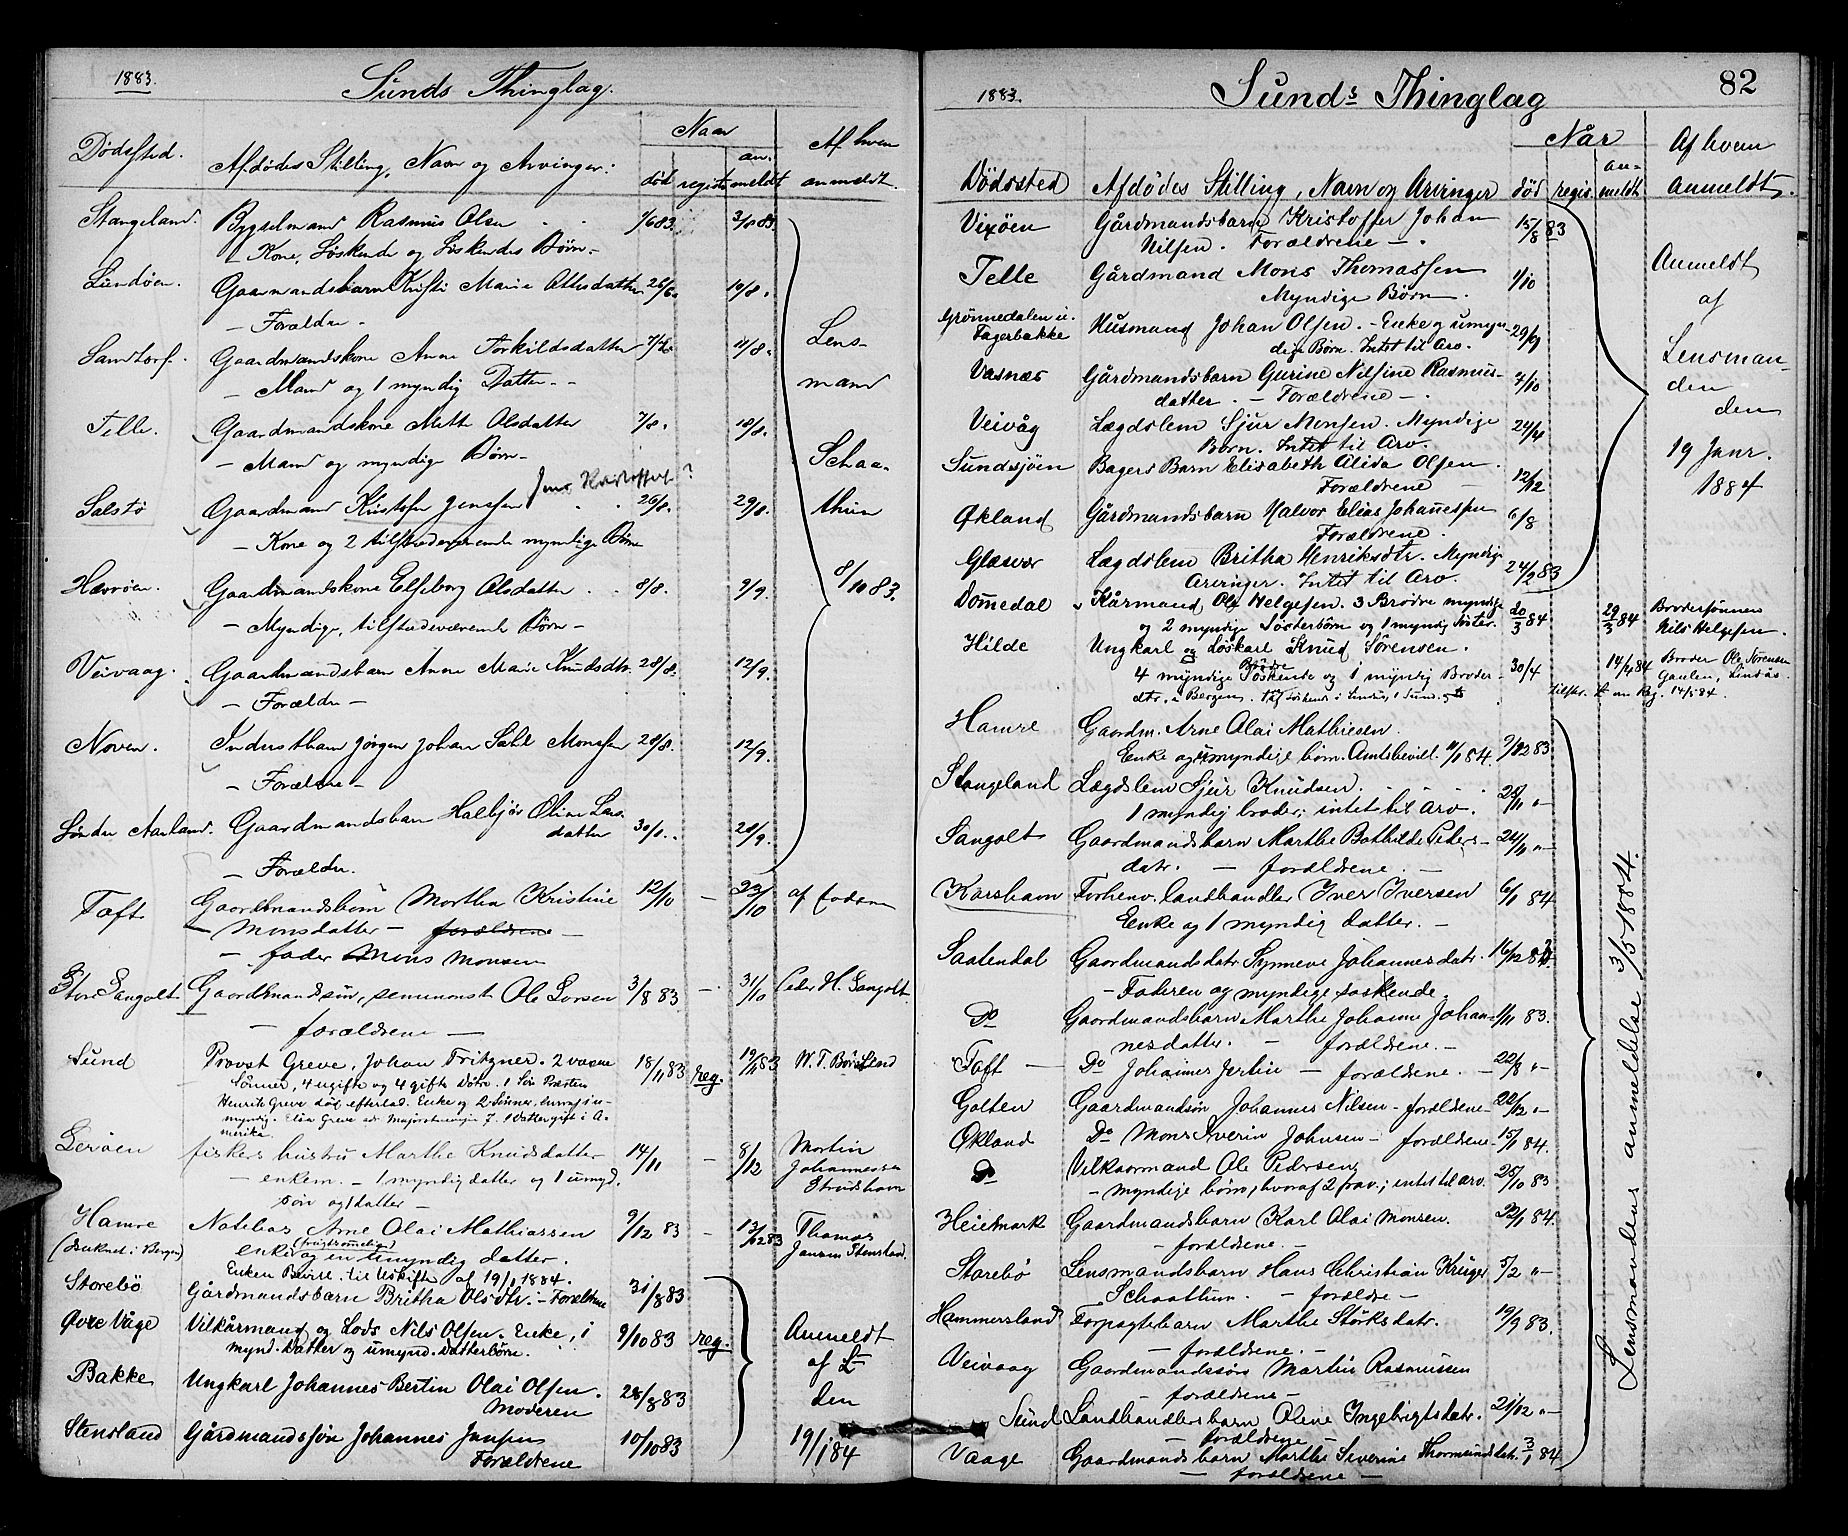 1883.
Sunds Thinglag.
Dødssted.
Afdødes Stilling, Navn og Arvinger:
Naar
død registr. an-meldt
Af hvem anmeldt.
Stangeland. Bygselmand Rasmus Olsen 1/6 83. 3/8 83.
- Kone, Søskende og Søskendes Børn -
Lundøen. Gaardmandsbarn Kristi Marie Ottesdatter 26/6. 10/8.
- Forældre -
Samtorf. Gaardmandskone Anne Torkildsdatter 11/8.
- Mand og 1 myndig Datter. -
Telle. Gaardmandskone Mette Olsdatter 7/8. 18/8.
- Mand og myndige Børn -
Jens Kristoffer?
Salstø Gaardmand Kristofer Jenssen 26/8. 29/8.
- Kone og 2 tilstedeværende myndige Børn
Hevrøen. Gaardmandskone Elseborg Olsdatter 8/8. 9/9.
- Myndige, tilstedeværende Børn -
Veivaag. Gaardmandsbarn Anne Marie Knudsdtr. 28/8. 12/9.
- Forældre -
Noven. Inderstbarn Jørgen Johan Monssen 28/8. 12/9.
- Forældre -
Søndre Aarland. Gaardmandsbarn Halbjør Oline Lars-
datter 30/8. 20/9.
- Forældre.
Lens-
mand
Schaa-
thun
8/10 83.
Toft Gaardmandsbørn Morthea Kristine 12/10 - 23/10 af faderen
- Monsdatter - forældrene -
- fader Mons Monsen
Store Sangolt Gaardmandsøn, seminarist Ole Larsen 3/8 83 - 31/10 Peder H. Sangolt
- forældrene -
Sund Provst Greve, Johan Fritzner. 2 voxne 18/11 83 reg. 19/11 83 W. T. Børs Lend
Sønner, 4 ugifte og 4 gifte Døtre. 1 Søn Præsten
Henrik Greve død efterlad. Enke og 2 Sønner, hvoraf 1 u-
myndig. 1 Datter gift i A-
merika.
Lerøen fiskers hustru Marthe Knudsdatter 14/11 - 8/12 Mortin
Johannessen
- enkem. - 1 myndig datter og 1 umynd.
søn og datter -
Hamre Notebas Arne Olai Mathiassen 9/12 83 13/12 83 Thomas
Jansen Stensland
(druknet i Bergen) enke og en umyndig datter.
(frugtsommelig)
Enken Bevill. til Uskifte af 19/1 1884.
Storebø Gårdmandsbarn Britha Olsdtr. - Forældrene 31/8 83
Øvre Våge Vilkårmand og Lods Nils Olsen. Enke, 1 9/10 83 reg.
mynd. Datter og umynd. Datterbørn.
Bakke Ungkarl Johannes Bertin Olai Olsen. 28/8 83
Moderen
Stensland Gårdmandssøn Johannes Jansen 10/10 83
Forældrene
Anmeldt
af L
den
19/1 84
1883.
Sunds Thinglag
82
Dødssted Afdødes Stilling, Navn og Arvinger
Når
død regis. an-meldt
Af hvem
anmeldt.
Vixøen Gårdmandsbarn Kristoffer Johan 15/8 83
Nilsen. Forældrene -.
Telle Gårdmand Mons Thomassen 1/10
Myndige Børn.
Grønnedalen u. Husmand Johan Olsen. - Enke og umyn- 29/9
Fagerbakke dige Børn. Intet til Arv.
Vasnæs Gårdmandsbarn Gurine Nilsine Rasmus- 4/10
datter. - Forældrene -.
Veivåg Lægdslem Sjur Monsen. Myndige 24/4
Børn. Intet til Arv.
Sundsjøen Bagers Barn Elisabeth Alida Olsen. 12/12
Forældrene -
Økland Gårdmandsbarn Halvor Elias Johannessen 6/8
Forældrene.
Glæsvær Lægdslem Britha Henriksdtr. Myndige 24/9 83
Arvinger. Intet til Arv.
Anmeldt
af
Lensman-
den
den
19 Janr.
1884
Dommedal Kårmand Ole Helgesen. 3 Brødre myndige 20/3 84 29/3 84 Brodersønnen
og 2 myndige Søsterbørn og 1 myndig Søster. Nils Helgesen.
Hilde Ungkarl og Løskarl Knud Sørensen.
4 myndige Søskende og 1 myndig Broder- 30/4 14/4 84 Broder Ole Sørensen
Brødre
dtr. i Bergen. Gaulen, Lindås.
Hamre Gaardm. Arne Olai Mathiesen.
Enke og umyndige børn. Amtsbevill. 11/1 84. 9/12 83
Stangeland Lægdslem Sjur Knudsen. 25/11 "-
1 myndig broder; intet til arv.
Sangolt Gaardmandsbarn Marthe Bothilde Peders- 24/11 "-
datr. - forældrene. -
Korshavn Forhenv. landhandler Iver Iversen 6/1 84
Enke og 1 myndig datter. -
Saatendal Gaardmandsdatr. Synneve Johannesdatr. 16/12 83
- Faderen og myndige søskende.
Do Gaardmandsbarn Marthe Johanne Johan- 1/11 83.
nesdatter. - forældrene. -
Toft - Do Johannes Jertin - forældrene. - 22/8 "-
Golten Gaardmandsøn Johannes Nilsen - forældrene - 22/12 "-
Økland Do Mons Severin Johnsen - forældrene - 15/1 84.
Do Vilkaarmand Ole Pedersen, 25/10 83
- myndige børn, hvoraf 2 frav.; intet til arv.
Heiemark Gaardmandsbarn Karl Olai Monsen. 22/1 84.
- forældrene. -
Storebø Lensmandsbarn Hans Christian Krüger 5/2 "-
Schaathun. - forældre -
Hammersland Forpagterbarn Marthe Størksdatr. 19/9 83.
- forældrene. -
Veivaag Gaardmandssøn Martin Rasmussen
- forældrene -
Sund Landhandlersbarn Olene Ingebrigtsdatr. 21/12 "-
- forældrene -
Vaage Gaardmandsbarn Marthe Severine Thormundsdatr. 3/1 84
- forældrene -
Lensmandens anmeldelse 3/5 1884.